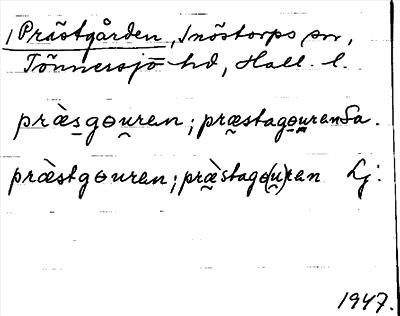 1 Prästgården, Snöstorps sn,
Tönnersjö hd, Hall. l.
præ̀sgɵu̯ren; præstagɵu̯ren Sa.
præ̀stgɵuren; præ̀stagɵ(u̯)ren Lj.
1947.